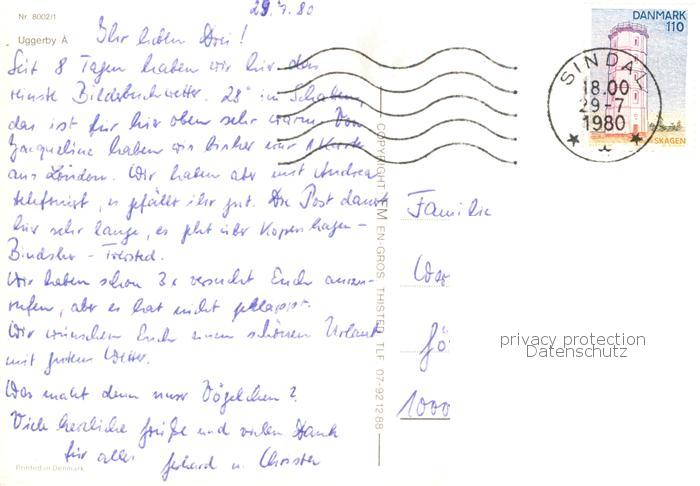 Nr. 8002/1
Uggerby Å
29.7.80
Ihr lieben Drei!
Seit 8 Tagen haben wir hier das
reinste Bilderbuchwetter. 28° im Schatten,
das ist für hier oben sehr warm. Von
Jacqueline haben wir bisher nur 1 Karte
aus London. Wir haben aber mit Andrea
telefoniert, es gefällt ihr gut. Die Post dauert
hier sehr lange, es geht über Kopenhagen-
Bindslev -
Wir haben schon 3x versucht Euch anzu-
rufen, aber es hat nicht geklappt.
Wir wünschen Euch einen schönen Urlaub
mit gutem Wetter.
Was macht denn unser Vögelchen?
Viele herzliche Grüße und vielen Dank
für alles Gerhard u. Christa
Printed in Denmark
COPYRIGHT FM EN-GROS THISTED TLF 07-92 12 88
DANMARK
110
SKAGEN
SINDAL
18.00
29-7
1980
Familie
1000
privacy protection
Datenschutz